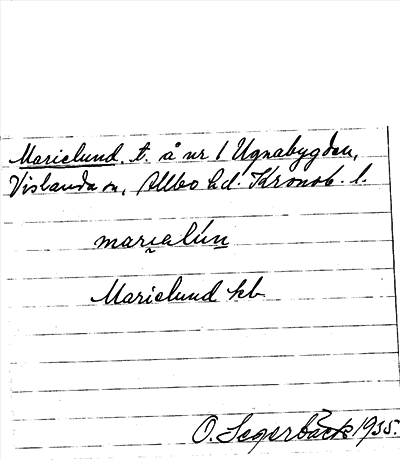 Marielund, t. å nr 1 Ugnabygden,
Vislanda sn, Allbo hd. Kronob. l.
marịalún
Marielund kb
O. Segerbäck 1935.